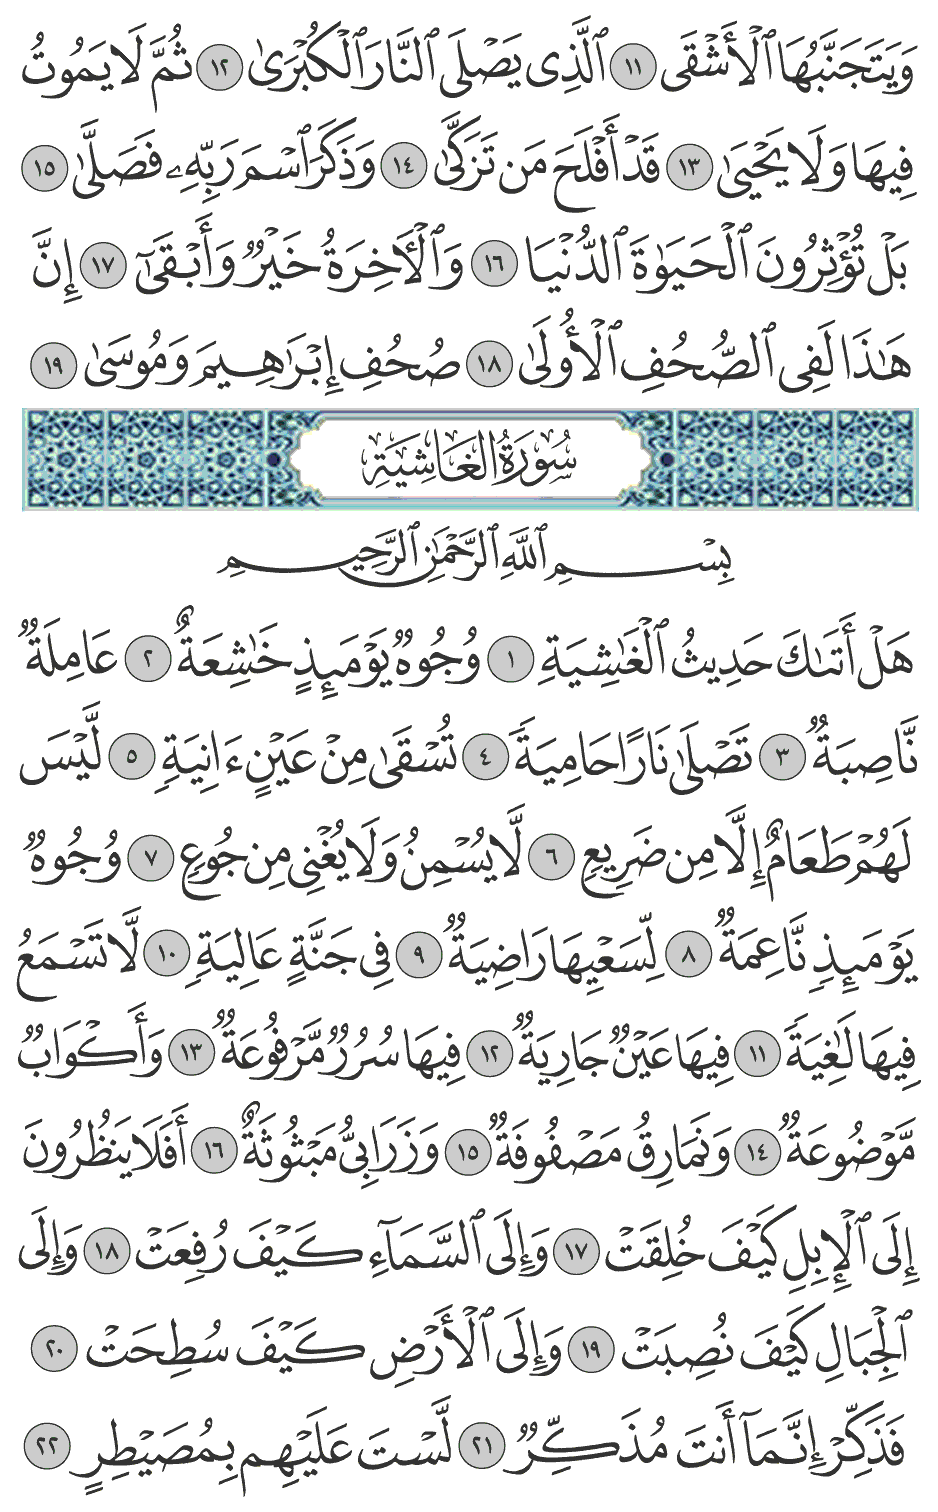 وَيَتَجَنَّبُهَا ٱلْأَشْقَى ١١ ٱلَّذِى يَصْلَى ٱلنَّارَ ٱلْكُبْرَىٰ ١٢ ثُمَّ لَا يَمُوتُ
فِيهَا وَلَا يَحْيَىٰ ١٣ قَدْ أَفْلَحَ مَن تَزَكَّىٰ ١٤ وَذَكَرَ ٱسْمَ رَبِّهِۦ فَصَلَّىٰ ١٥
بَلْ تُؤْثِرُونَ ٱلْحَيَوٰةَ ٱلدُّنْيَا ١٦ وَٱلْأَخِرَةُ خَيْرٌ وَأَبْقَىٰٓ ١٧ إِنَّ
هَٰذَا لَفِى ٱلصُّحُفِ ٱلْأُولَىٰ ١٨ صُحُفِ إِبْرَٰهِيمَ وَمُوسَىٰ ١٩
سُورَةُ الغَاشِيَةِ
بِسْمِ ٱللَّهِ ٱلرَّحْمَٰنِ ٱلرَّحِيمِ
هَلْ أَتَىٰكَ حَدِيثُ ٱلْغَٰشِيَةِ ١ وُجُوهٌ يَوْمَئِذٍ خَٰشِعَةٌ ٢ عَامِلَةٌ
نَّاصِبَةٌ ٣ تَصْلَىٰ نَارًا حَامِيَةً ٤ تُسْقَىٰ مِنْ عَيْنٍ ءَانِيَةٍ ٥ لَّيْسَ
لَهُمْ طَعَامٌ إِلَّا مِن ضَرِيعٍ ٦ لَّا يُسْمِنُ وَلَا يُغْنِى مِن جُوعٍ ٧ وُجُوهٌ
يَوْمَئِذٍ نَّاعِمَةٌ ٨ لِّسَعْيِهَا رَاضِيَةٌ ٩ فِى جَنَّةٍ عَالِيَةٍ ١٠ لَّا تَسْمَعُ
فِيهَا لَٰغِيَةً ١١ فِيهَا عَيْنٌ جَارِيَةٌ ١٢ فِيهَا سُرُرٌ مَّرْفُوعَةٌ ١٣ وَأَكْوَابٌ
مَّوْضُوعَةٌ ١٤ وَنَمَارِقُ مَصْفُوفَةٌ ١٥ وَزَرَابِىُّ مَبْثُوثَةٌ ١٦ أَفَلَا يَنظُرُونَ
إِلَى ٱلْإِبِلِ كَيْفَ خُلِقَتْ ١٧ وَإِلَى ٱلسَّمَآءِ كَيْفَ رُفِعَتْ ١٨ وَإِلَى
ٱلْجِبَالِ كَيْفَ نُصِبَتْ ١٩ وَإِلَى ٱلْأَرْضِ كَيْفَ سُطِحَتْ ٢٠
فَذَكِّرْ إِنَّمَآ أَنتَ مُذَكِّرٌ ٢١ لَّسْتَ عَلَيْهِم بِمُصَيْطِرٍ ٢٢